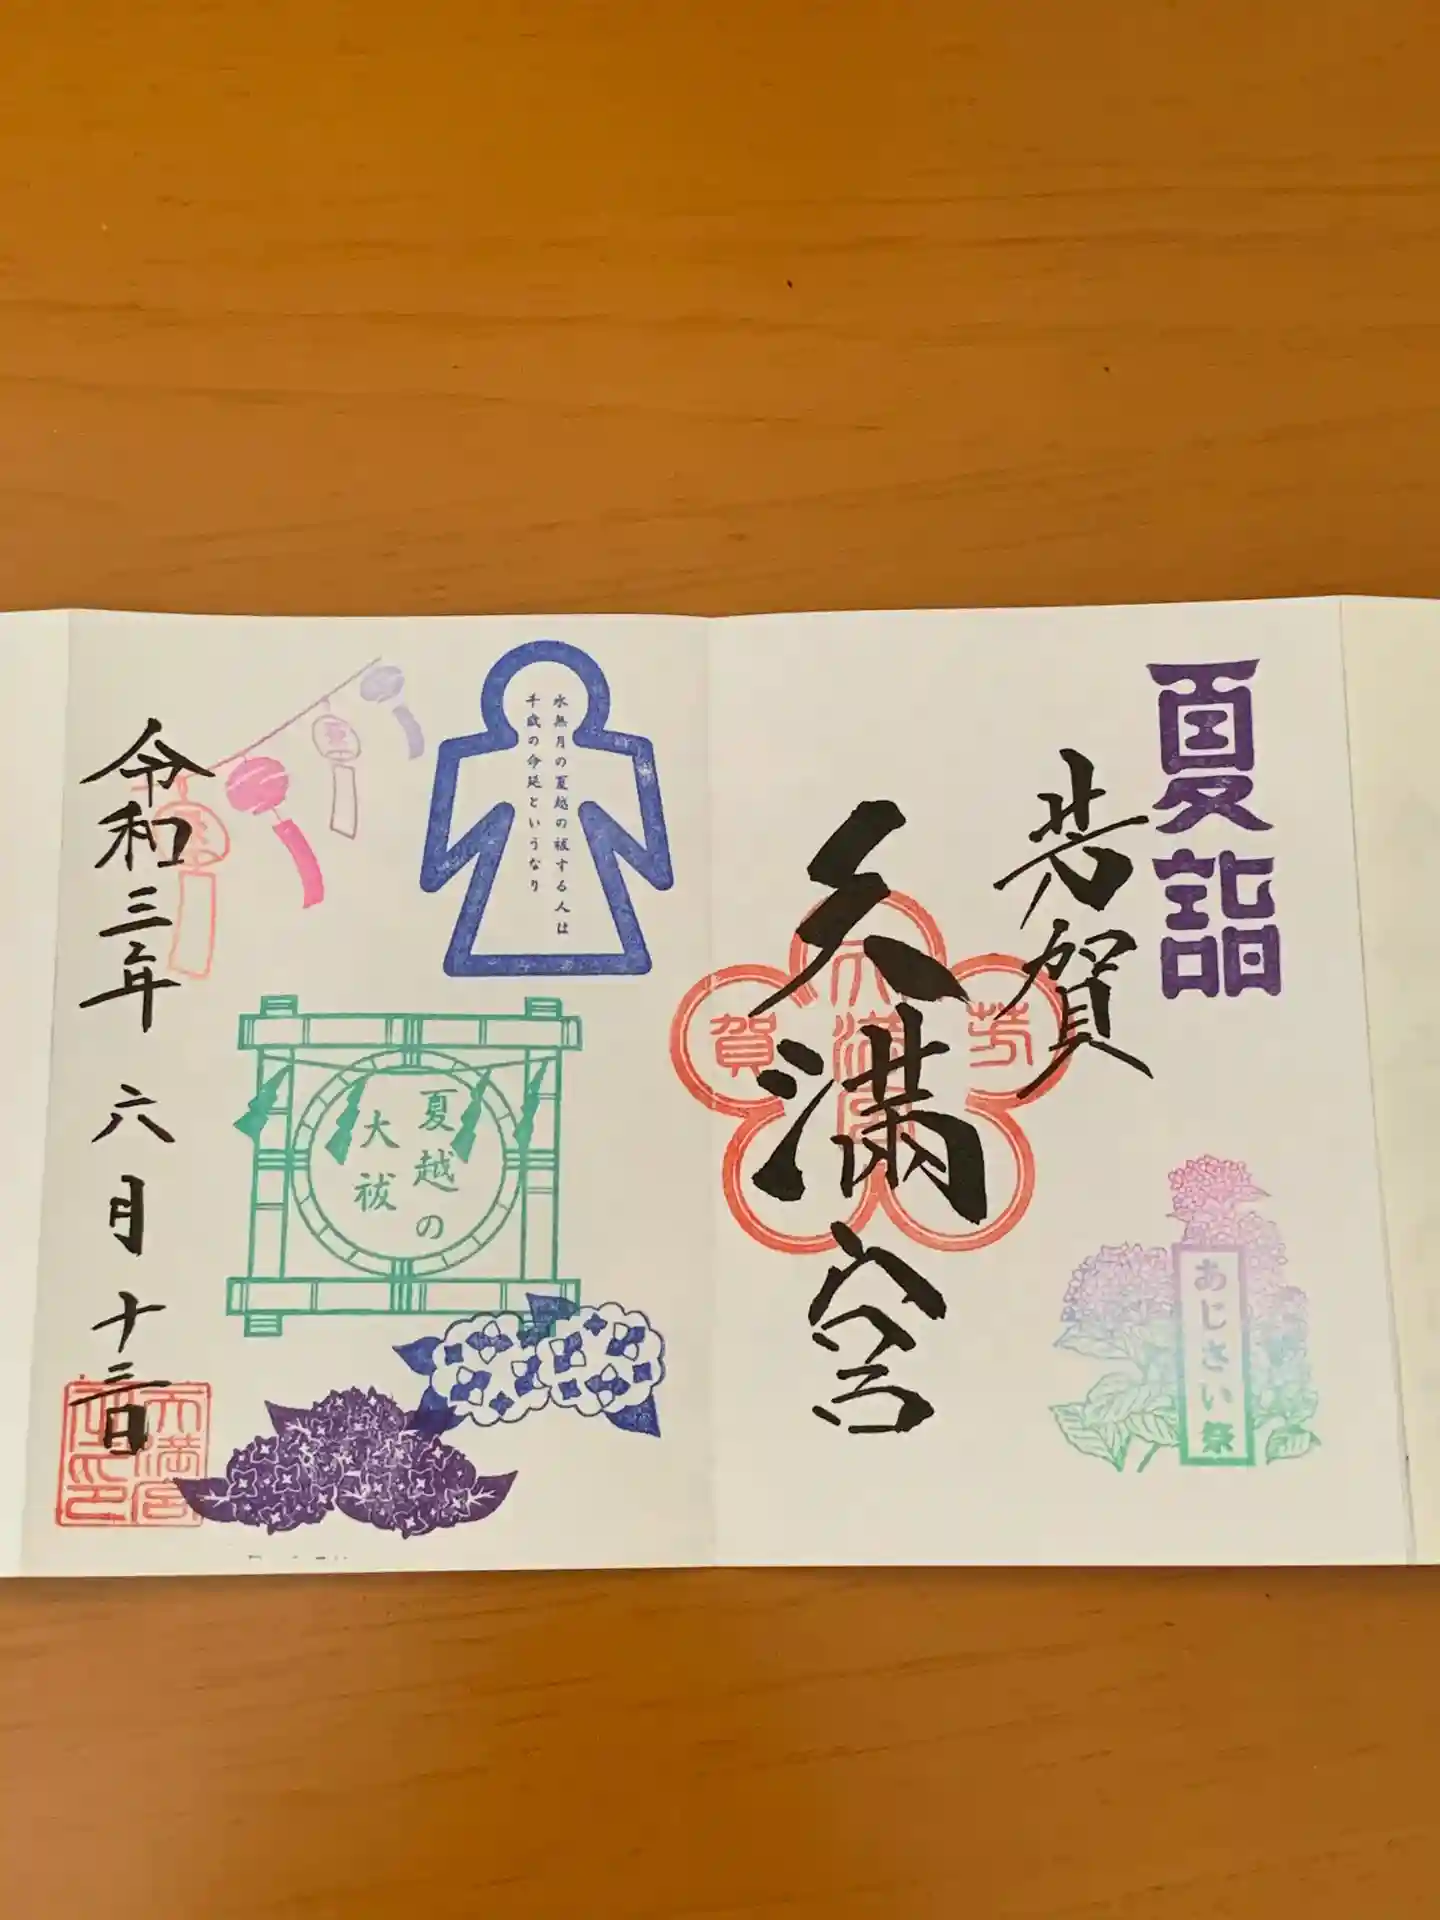 夏詣
芳賀
天満宮
芳
天満宮
賀
あじさい祭
水無月の夏越の祓する人は
千歳の命延というなり
夏越の
大祓
令和三年 六月十三日
天満宮